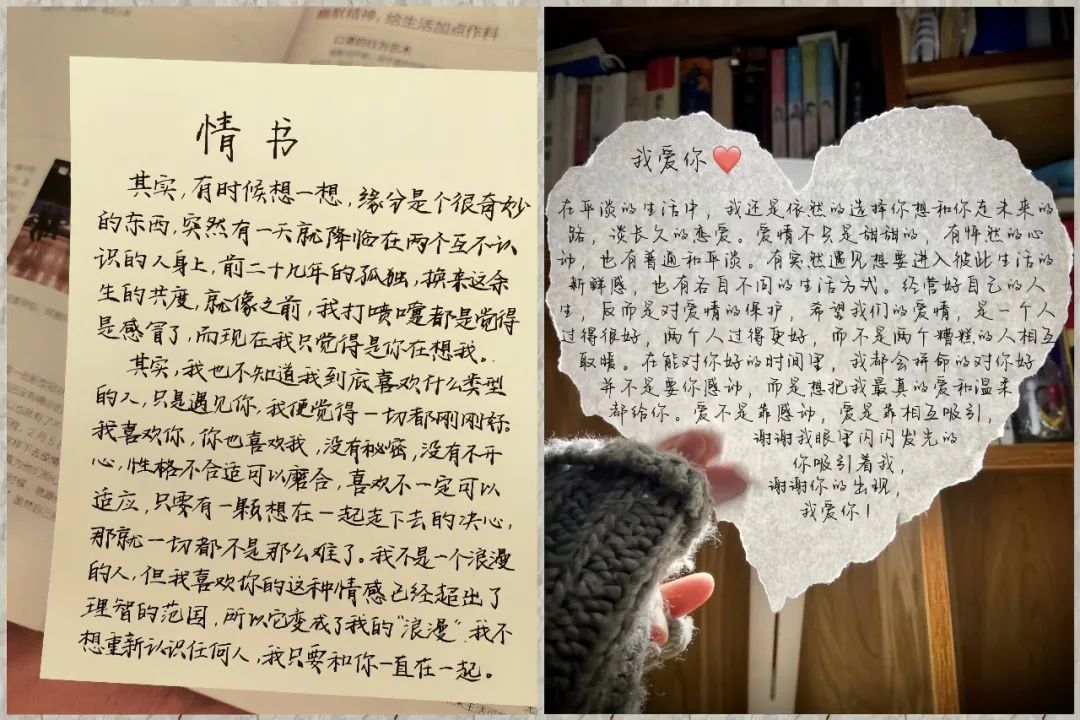 幽默精神，给生活加点作料
情书
其实，有时候想一想，缘分是个很奇妙
的东西，突然有一天就降临在两个互不认
识的人身上，前二十几年的孤独，换来这余
生的共度，就像之前，我打喷嚏都是觉得
是感冒了，而现在我只觉得是你在想我。
其实，我也不知道我到底喜欢什么类型
的人，只是遇见你，我便觉得一切都刚刚好。
我喜欢你，你也喜欢我，没有秘密，没有不开
心，性格不合适可以磨合，喜欢不一定可以
适应，只要有一颗想在一起走下去的决心，
那就一切都不是那么难了。我不是一个浪漫
的人，但我喜欢你的这种情感已经超出了
理智的范围，所以它变成了我的“浪漫”.我不
想重新认识任何人，我只要和你一直在一起。
我爱你❤️
在平淡的生活中，我还是依然的选择你想和你走未来的
路，谈长久的恋爱。爱情不只是甜甜的，有怦然的心
动，也有普通和平淡。有突然遇见想要进入彼此生活的
新鲜感，也有各自不同的生活方式。经营好自己的人
生，反而是对爱情的保护，希望我们的爱情，是一个人
过得很好，两个人过得更好，而不是两个糟糕的人相互
取暖。在能对你好的时间里，我都会拼命的对你好
并不是要你感动，而是想把我最真的爱和温柔
都给你。爱不是靠感动，爱是靠相互吸引，
谢谢我眼里闪闪发光的
你吸引着我，
谢谢你的出现，
我爱你！